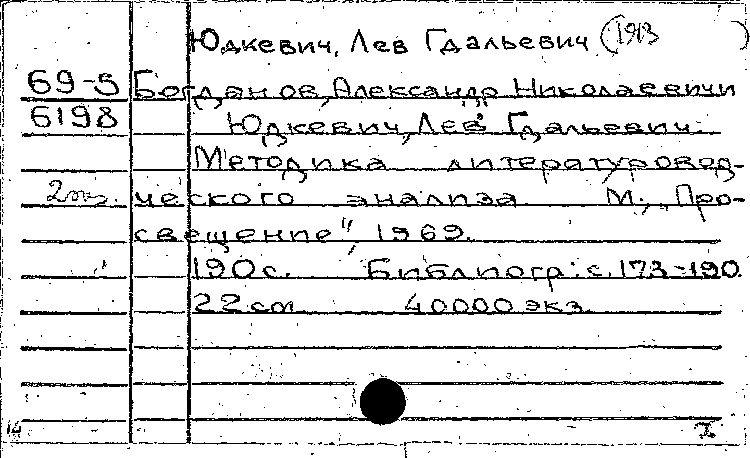 Юдкевич, Лев Гдальевич (1913 )
69-5 Богданов, Александр Николаевич и
6198 Юдкевич, Лев Гдальевич.
Методика литературовед-
2 экз. ческого анализа М., „Про-
свещение", 1969.
190 с. Библиогр: с. 173-190.
22 см 40000 экз.